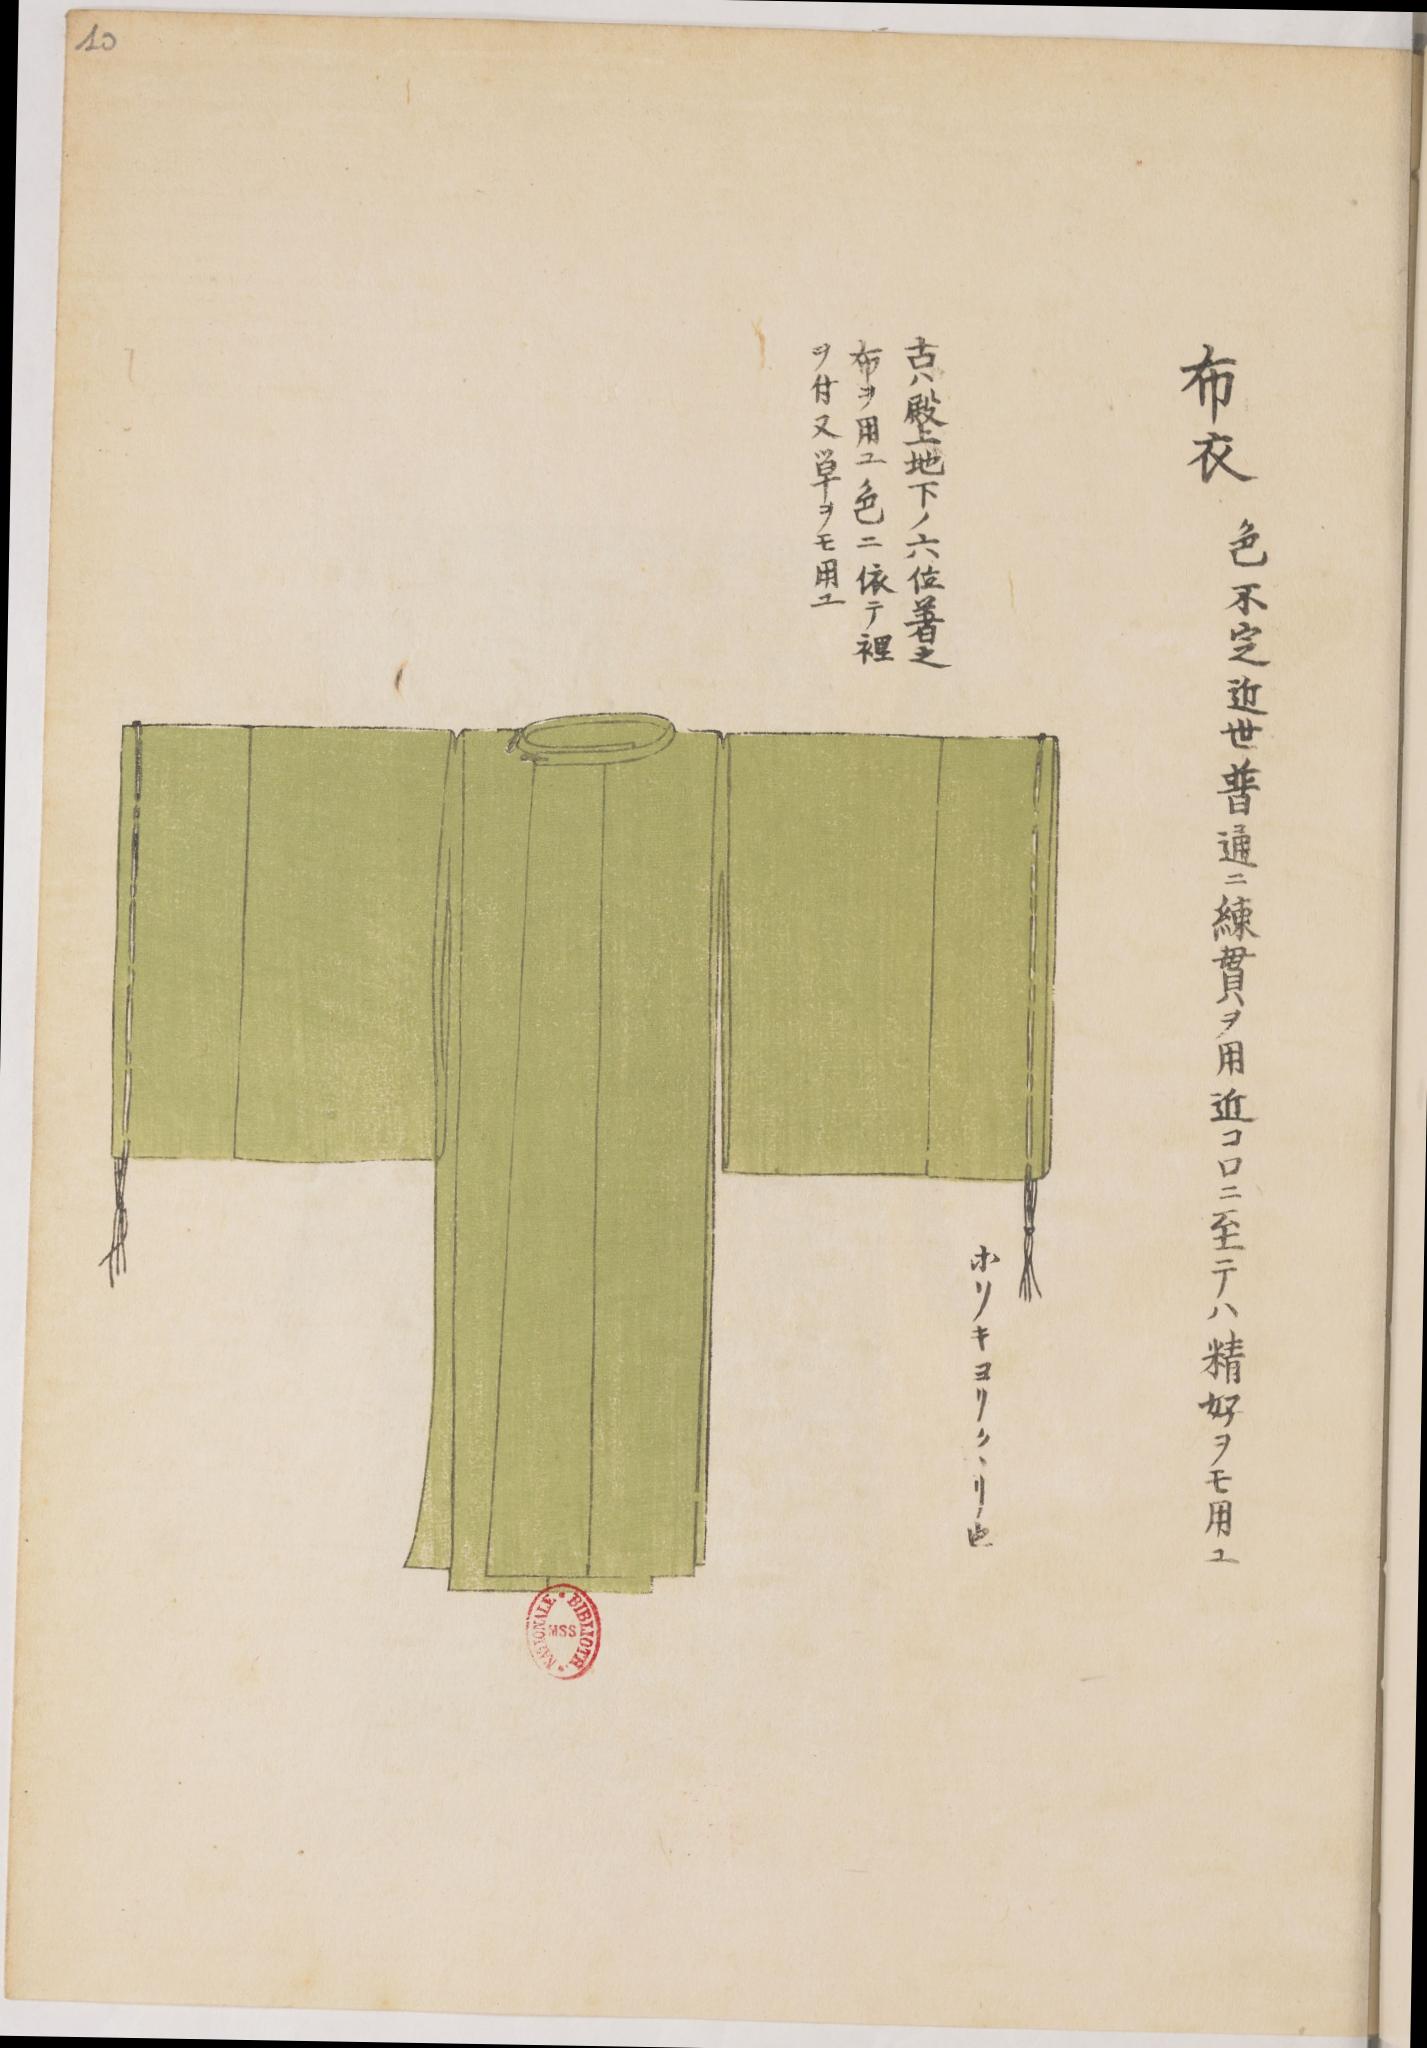 布衣 色不定近世普通ニ練貫ヲ用近コロニ至テハ精好ヲモ用ユ
古ハ殿上地下ノ六位著之
布ヲ用ユ色ニ依テ裡
ヲ付又単ヲモ用ユ
ホリキヨリクヽリ也
10
BIBLIOTH. NATIONALE
MSS